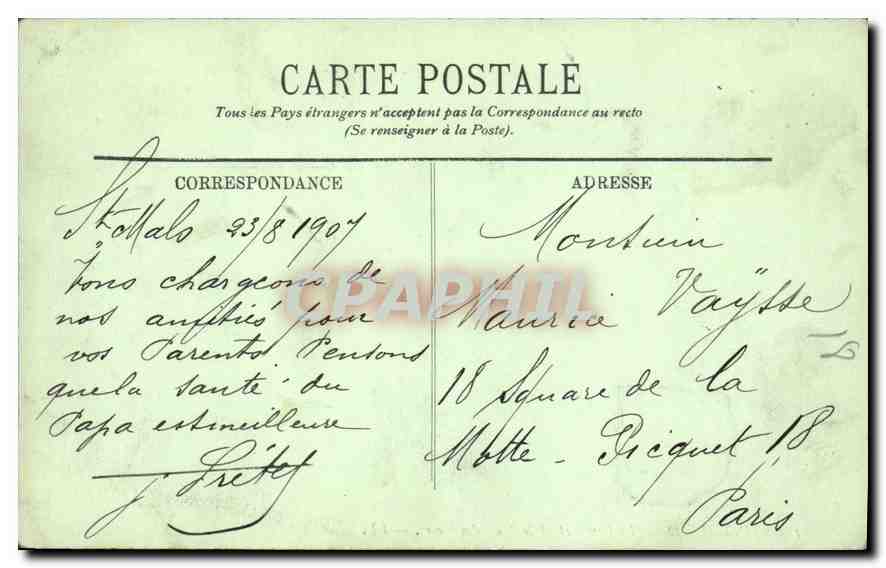 CARTE POSTALE
Tous les Pays étrangers n'acceptent pas la Correspondance au recto
(Se renseigner à la Poste).
CORRESPONDANCE
St Malo 23/8 1907
Vous chargeons de
nos amitiés pour
vos Parents Pensons
que la santé du
Papa est meilleure
ADRESSE
Monsieur
Maurice Vaÿsse
18 Square de la
Motte - Picquet 18
Paris
CPAPHIL